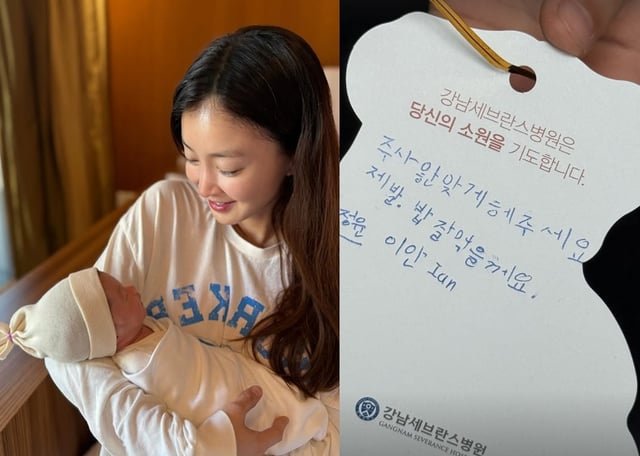 강남세브란스병원은
당신의 소원을 기도합니다.
주사 안맞게 해주세요
제발. 밥 잘먹을께요.
이안 Ian
강남세브란스병원
GANGNAM SEVERANCE HOS